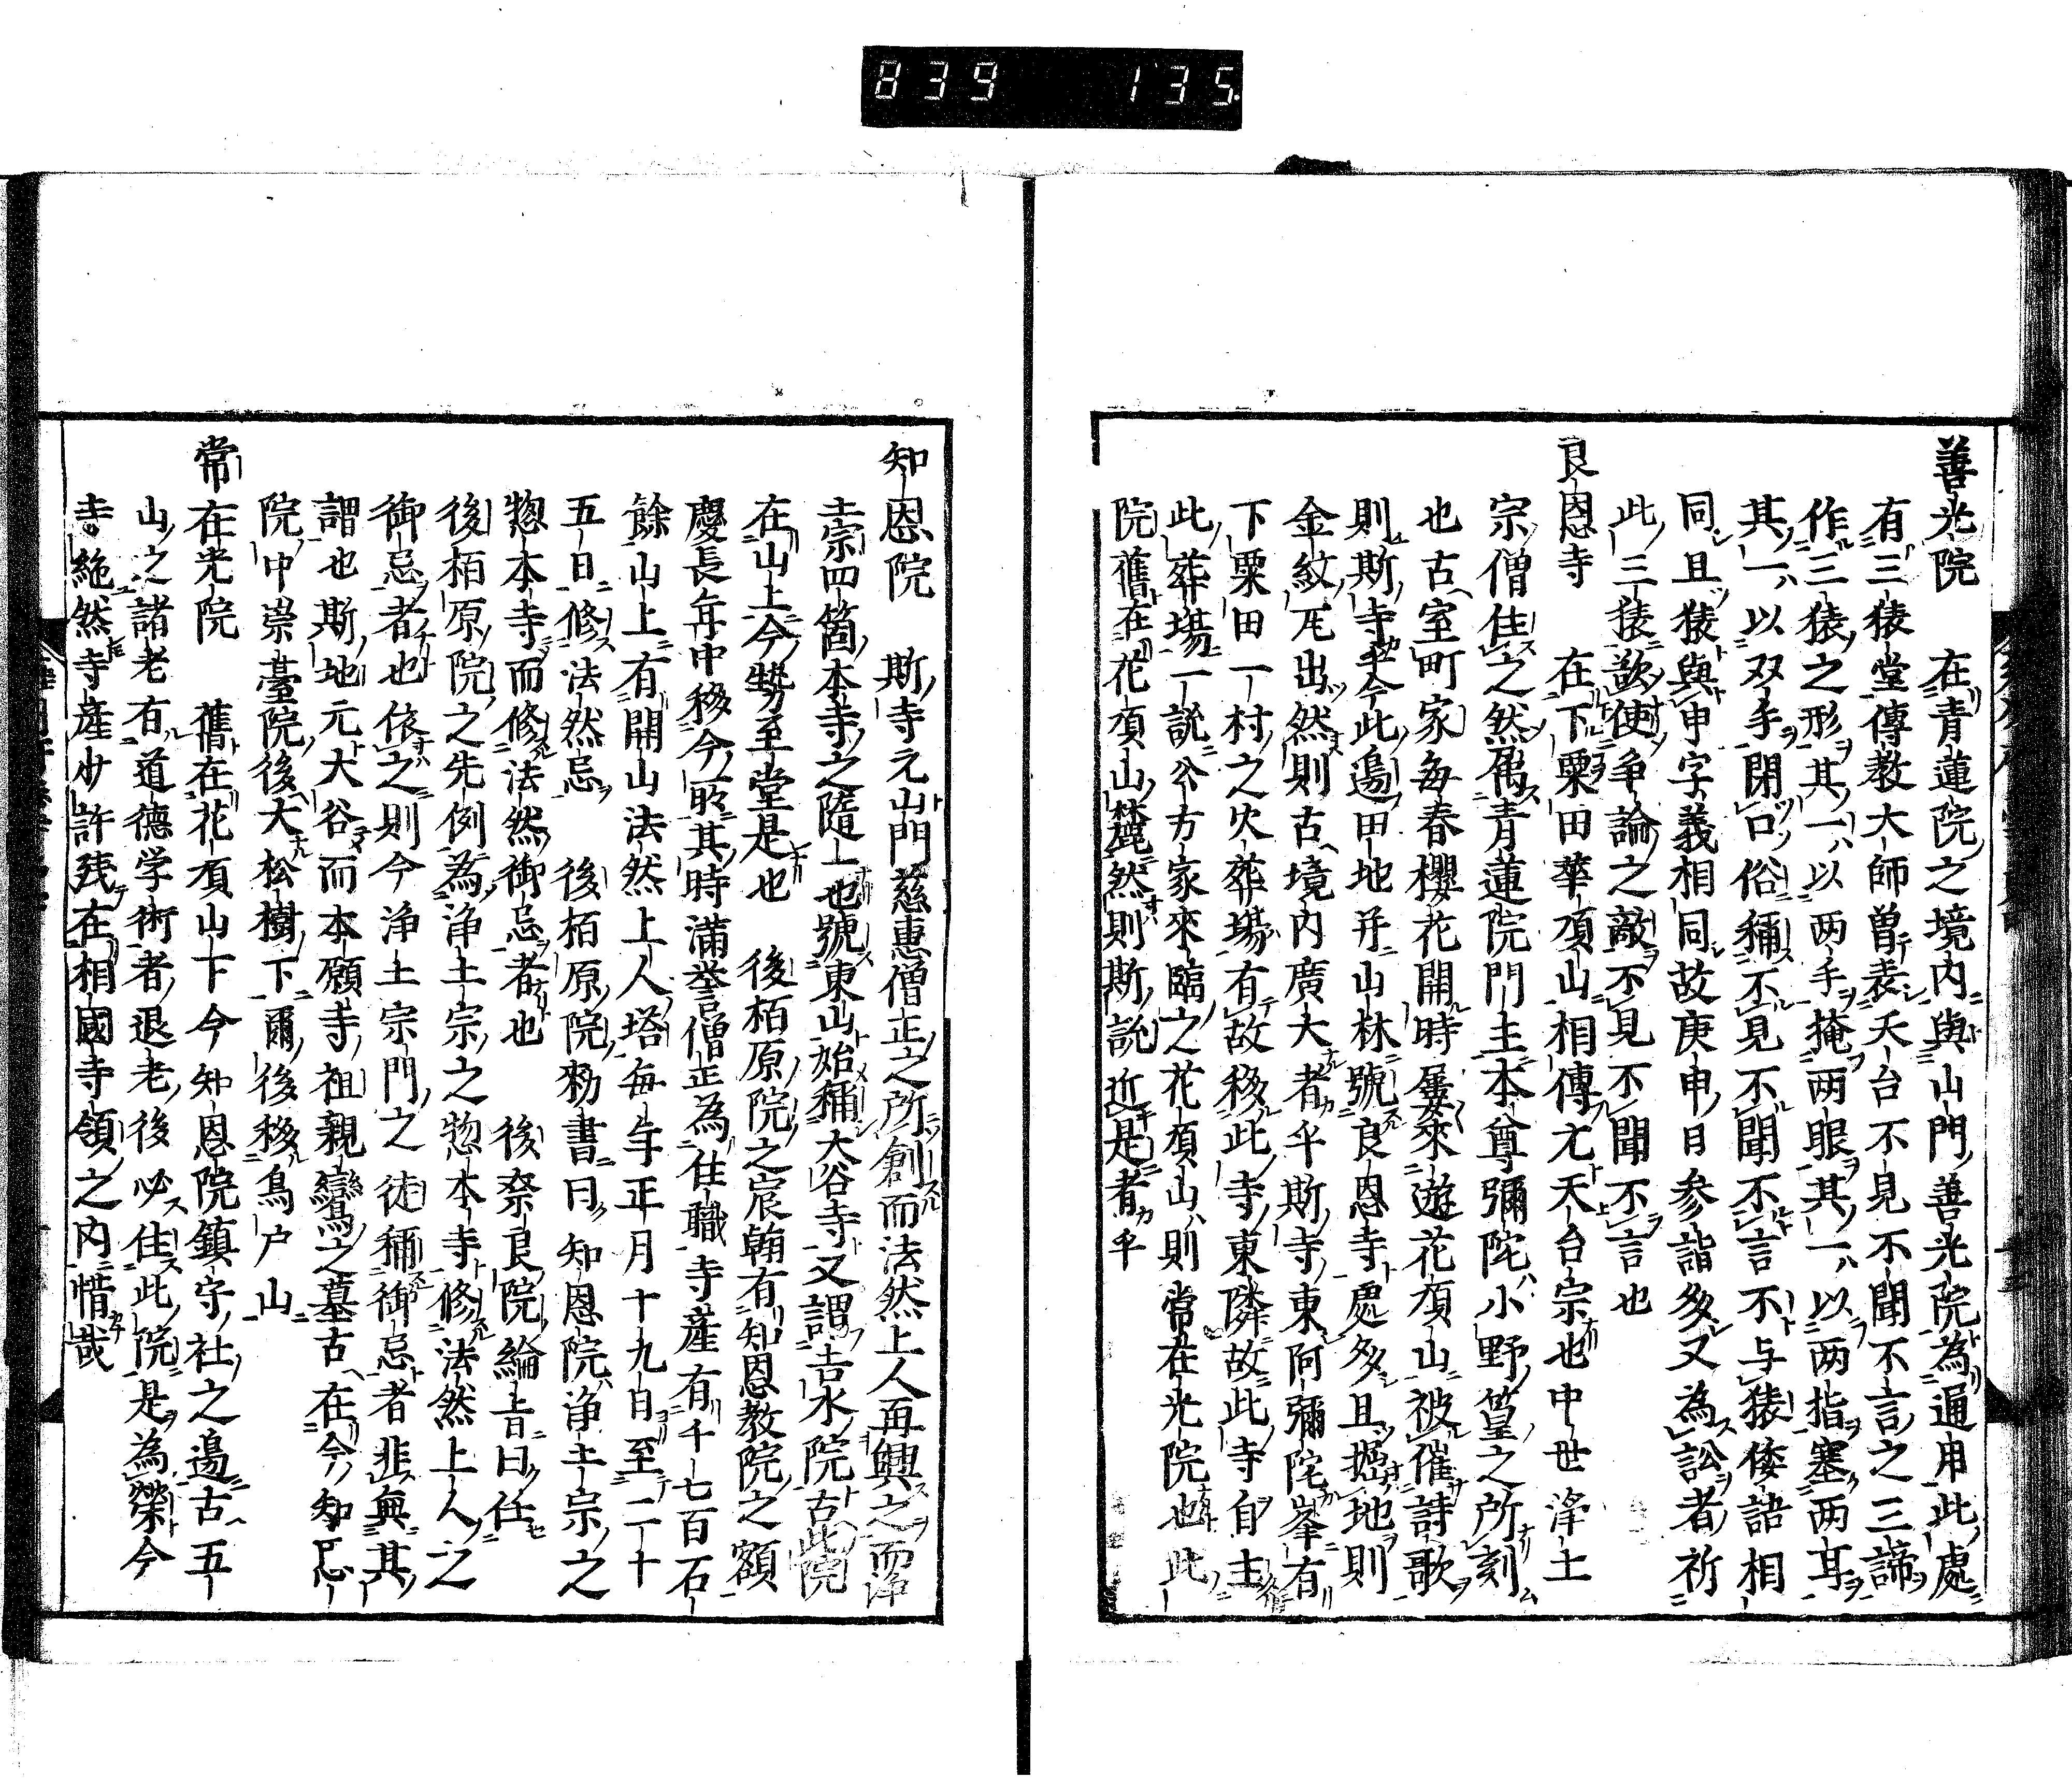 839 135
善光院 在青蓮院之境内與山門善光院為通用此處
有三猿堂傳教大師曽表天台不見不聞不言之三諦
作三猿之形其一以两手掩两眼其一以两指塞两耳
其一以双手閉口俗稱不見不聞不言不与猿倭語相
同且猿與申字義相同故庚申日参詣多又為訟者祈
此三猿欲使争論之敵不見不聞不言也
良恩寺 在下粟田華頂山相傳尢天台宗也中世淨土
宗僧住之然属青蓮院門主本尊彌陀小野篁之所刻
也古室町家毎春櫻花開時屢來遊花頂山被催詩歌
則斯寺至今此邉田地并山林號良恩寺處多且掘地則
金紋瓦出然則古境内廣大者乎斯寺東阿彌陀峯有
下粟田一村之火葬場有故移此寺東隣故此寺自主
此葬場一説公方家來臨之花頂山則常在光院也此
院舊在花頂山麓然則斯説近是者乎
知恩院 斯寺元山門慈惠僧正之所創而法然上人再興之而淨
土宗四箇本寺之隨一也號東山始稱大谷寺又謂吉水院古此院
在山上今勢至堂是也 後栢原院之宸翰有知恩教院之額
慶長年中移今所其時滿誉僧正為住職寺産有千七百石
餘山上有開山法然上人塔毎年正月十九日至二十
五日修法然忌 後栢原院勅書曰知恩院浄土宗之
惣本寺而修法然御忌者也 後奈良院綸旨曰任
後栢原院之先例為浄土宗之惣本寺修法然上人之
御忌者也依之則今浄土宗門之徒稱御忌者非無其
謂也斯地元大谷而本願寺祖親鸞之墓古在今知恩
院中崇臺院後大松樹下爾後移鳥戸山
常在光院 舊在花頂山下今知恩院鎮守社之邉古五
山之諸老有道德学術者退老後必住此院是為榮今
寺絶然寺産少許残在相國寺領之内惜哉